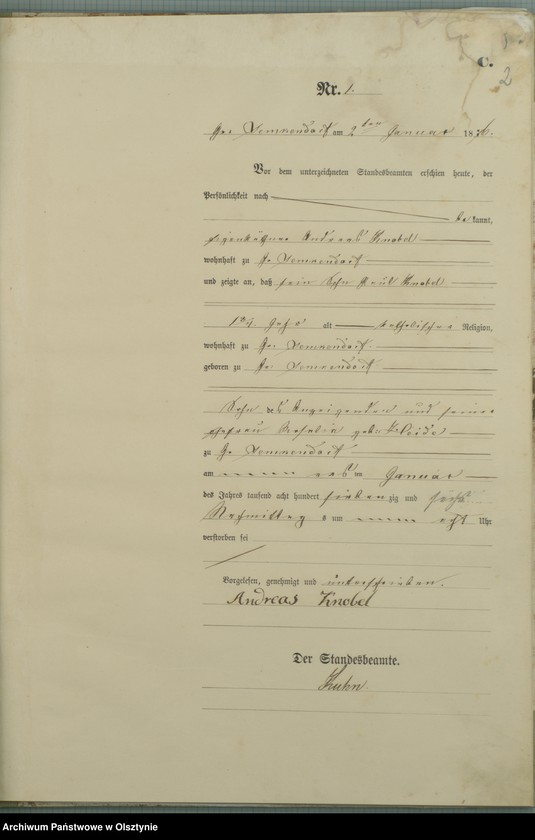 C.
2
Nr. 1.
Gr. am 2ten Januar 1876.
Vor dem unterzeichneten Standesbeamten erschien heute, der
Persönlichkeit nach
be kannt,
Andreas Knobel
wohnhaft zu Gr.
und zeigte an, daß sein Sohn Paul Knobel
Jahr alt katholischer Religion,
wohnhaft zu Gr.
geboren zu Gr.
Sohn des Anzeigenden und seiner
Ehefrau Rosalia geb.
zu Gr.
am ten Januar
des Jahres tausend acht hundert siebenzig und sechs
Nachmittags um Uhr
verstorben sei
Vorgelesen, genehmigt und unterschrieben.
Andreas Knobel
Der Standesbeamte.
Kuhn.
Archiwum Państwowe w Olsztynie